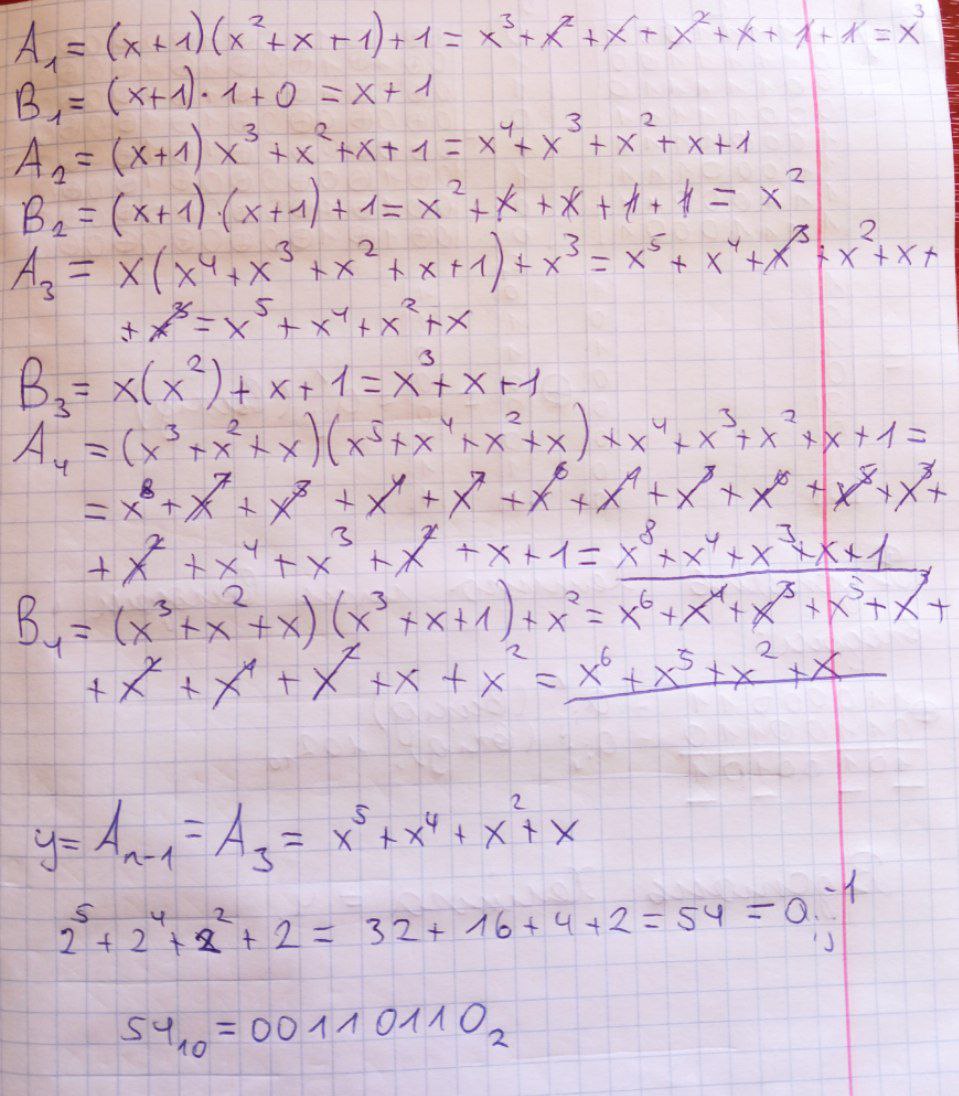 A₁ = (x+1)(x²+x+1)+1 = x³+x²+x+x²+x+1+1 = x³
B₁ = (x+1)·1+0 = x+1
A₂ = (x+1)x³+x²+x+1 = x⁴+x³+x²+x+1
B₂ = (x+1)·(x+1)+1 = x²+x+x+1+1 = x²
A₃ = x(x⁴+x³+x²+x+1)+x³ = x⁵+x⁴+x³+x²+x+
+x³ = x⁵+x⁴+x²+x
B₃ = x(x²)+x+1 = x³+x+1
A₄ = (x³+x²+x)(x⁵+x⁴+x²+x)+x⁴+x³+x²+x+1 =
= x⁸+x⁷+x⁵+x⁴+x⁷+x⁶+x⁴+x³+x⁶+x⁵+x³+
+x²+x⁴+x³+x²+x+1 = x⁸+x⁴+x³+x+1
B₄ = (x³+x²+x)(x³+x+1)+x² = x⁶+x⁴+x³+x⁵+x³+
+x²+x⁴+x²+x+x² = x⁶+x⁵+x²+x
y = Aₙ₋₁ = A₃ = x⁵+x⁴+x²+x
2⁵+2⁴+2²+2 = 32+16+4+2 = 54 = aᵢⱼ⁻¹
54₁₀ = 00110110₂